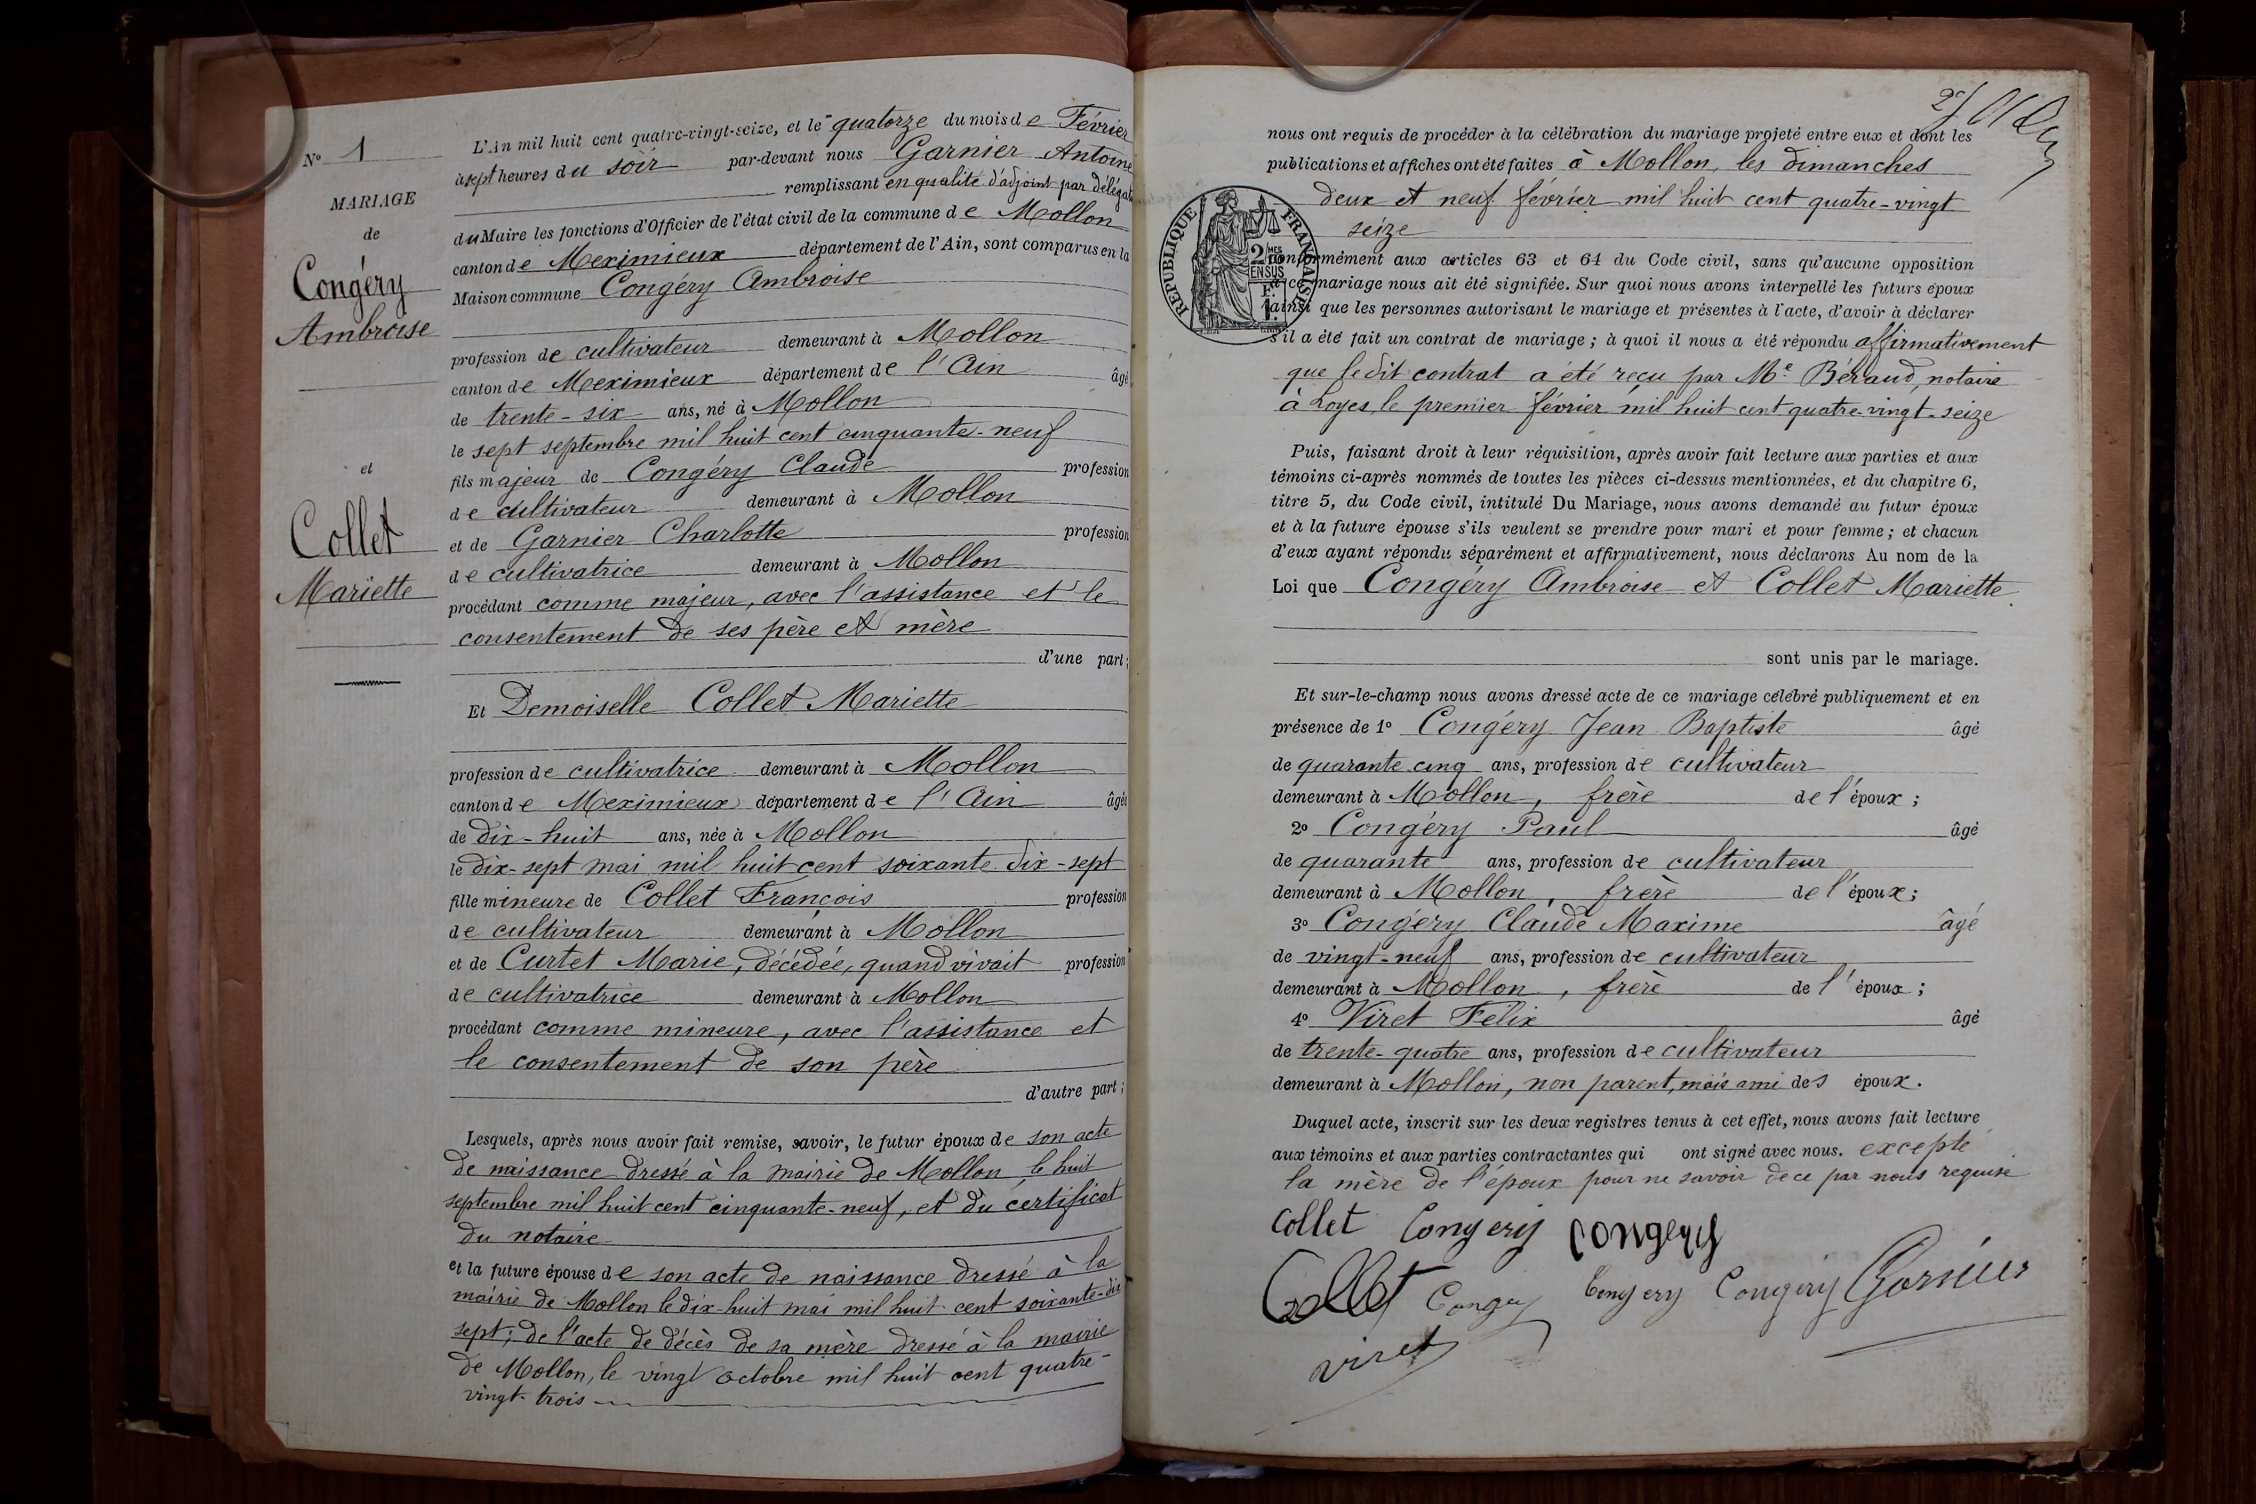 N° 1
MARIAGE
de
Congéry
Ambroise
et
Collet
Mariette
L'An mil huit cent quatre-vingt-seize, et le quatorze du mois de Février
à sept heures du soir par-devant nous Garnier Antoine
remplissant en qualité d'adjoint par délégat
du Maire les fonctions d'Officier de l'état civil de la commune de Mollon
canton de Meximieux département de l'Ain, sont comparus en la
Maison commune Congéry Ambroise
profession de cultivateur demeurant à Mollon
canton de Meximieux département de l'Ain âgé
de trente-six ans, né à Mollon
le sept septembre mil huit cent cinquante-neuf
fils majeur de Congéry Claude profession
de cultivateur demeurant à Mollon
et de Garnier Charlotte profession
de cultivatrice demeurant à Mollon
procédant comme majeur, avec l'assistance et le
consentement de ses père et mère
d'une part;
Et Demoiselle Collet Mariette
profession de cultivatrice demeurant à Mollon
canton de Meximieux département de l'Ain âgée
de dix-huit ans, née à Mollon
le dix-sept mai mil huit cent soixante dix-sept
fille mineure de Collet François profession
de cultivateur demeurant à Mollon
et de Curtet Marie, décédée, quand vivait profession
de cultivatrice demeurant à Mollon
procédant comme mineure, avec l'assistance et
le consentement de son père
d'autre part;
Lesquels, après nous avoir fait remise, savoir, le futur époux de son acte
de naissance dressé à la mairie de Mollon, le huit
septembre mil huit cent cinquante-neuf, et du certificat
du notaire
et la future épouse de son acte de naissance dressé à la
mairie de Mollon le dix-huit mai mil huit cent soixante-dix
sept; de l'acte de décès de sa mère dressé à la mairie
de Mollon, le vingt octobre mil huit cent quatre-
vingt-trois
nous ont requis de procéder à la célébration du mariage projeté entre eux et dont les
publications et affiches ont été faites à Mollon, les dimanches
deux et neuf février mil huit cent quatre-vingt
seize
REPUBLIQUE FRANÇAISE
conformément aux articles 63 et 64 du Code civil, sans qu'aucune opposition
à ce mariage nous ait été signifiée. Sur quoi nous avons interpellé les futurs époux
ainsi que les personnes autorisant le mariage et présentes à l'acte, d'avoir à déclarer
s'il a été fait un contrat de mariage; à quoi il nous a été répondu affirmativement
que ledit contrat a été reçu par Me Béraud, notaire
à Loyes le premier février mil huit cent quatre-vingt-seize
Puis, faisant droit à leur réquisition, après avoir fait lecture aux parties et aux
témoins ci-après nommés de toutes les pièces ci-dessus mentionnées, et du chapitre 6,
titre 5, du Code civil, intitulé Du Mariage, nous avons demandé au futur époux
et à la future épouse s'ils veulent se prendre pour mari et pour femme; et chacun
d'eux ayant répondu séparément et affirmativement, nous déclarons Au nom de la
Loi que Congéry Ambroise et Collet Mariette
sont unis par le mariage.
Et sur-le-champ nous avons dressé acte de ce mariage célébré publiquement et en
présence de 1° Congéry Jean Baptiste âgé
de quarante cinq ans, profession de cultivateur
demeurant à Mollon, frère de l'époux;
2° Congéry Paul âgé
de quarante ans, profession de cultivateur
demeurant à Mollon, frère de l'époux;
3° Congéry Claude Maxime âgé
de vingt-neuf ans, profession de cultivateur
demeurant à Mollon, frère de l'époux;
4° Viret Félix âgé
de trente-quatre ans, profession de cultivateur
demeurant à Mollon, non parent, mais ami des époux.
Duquel acte, inscrit sur les deux registres tenus à cet effet, nous avons fait lecture
aux témoins et aux parties contractantes qui ont signé avec nous. excepté
la mère de l'époux pour ne savoir de ce par nous requise
Collet Congery Congery
Collet Congery Congery Congéry Garnier
viret